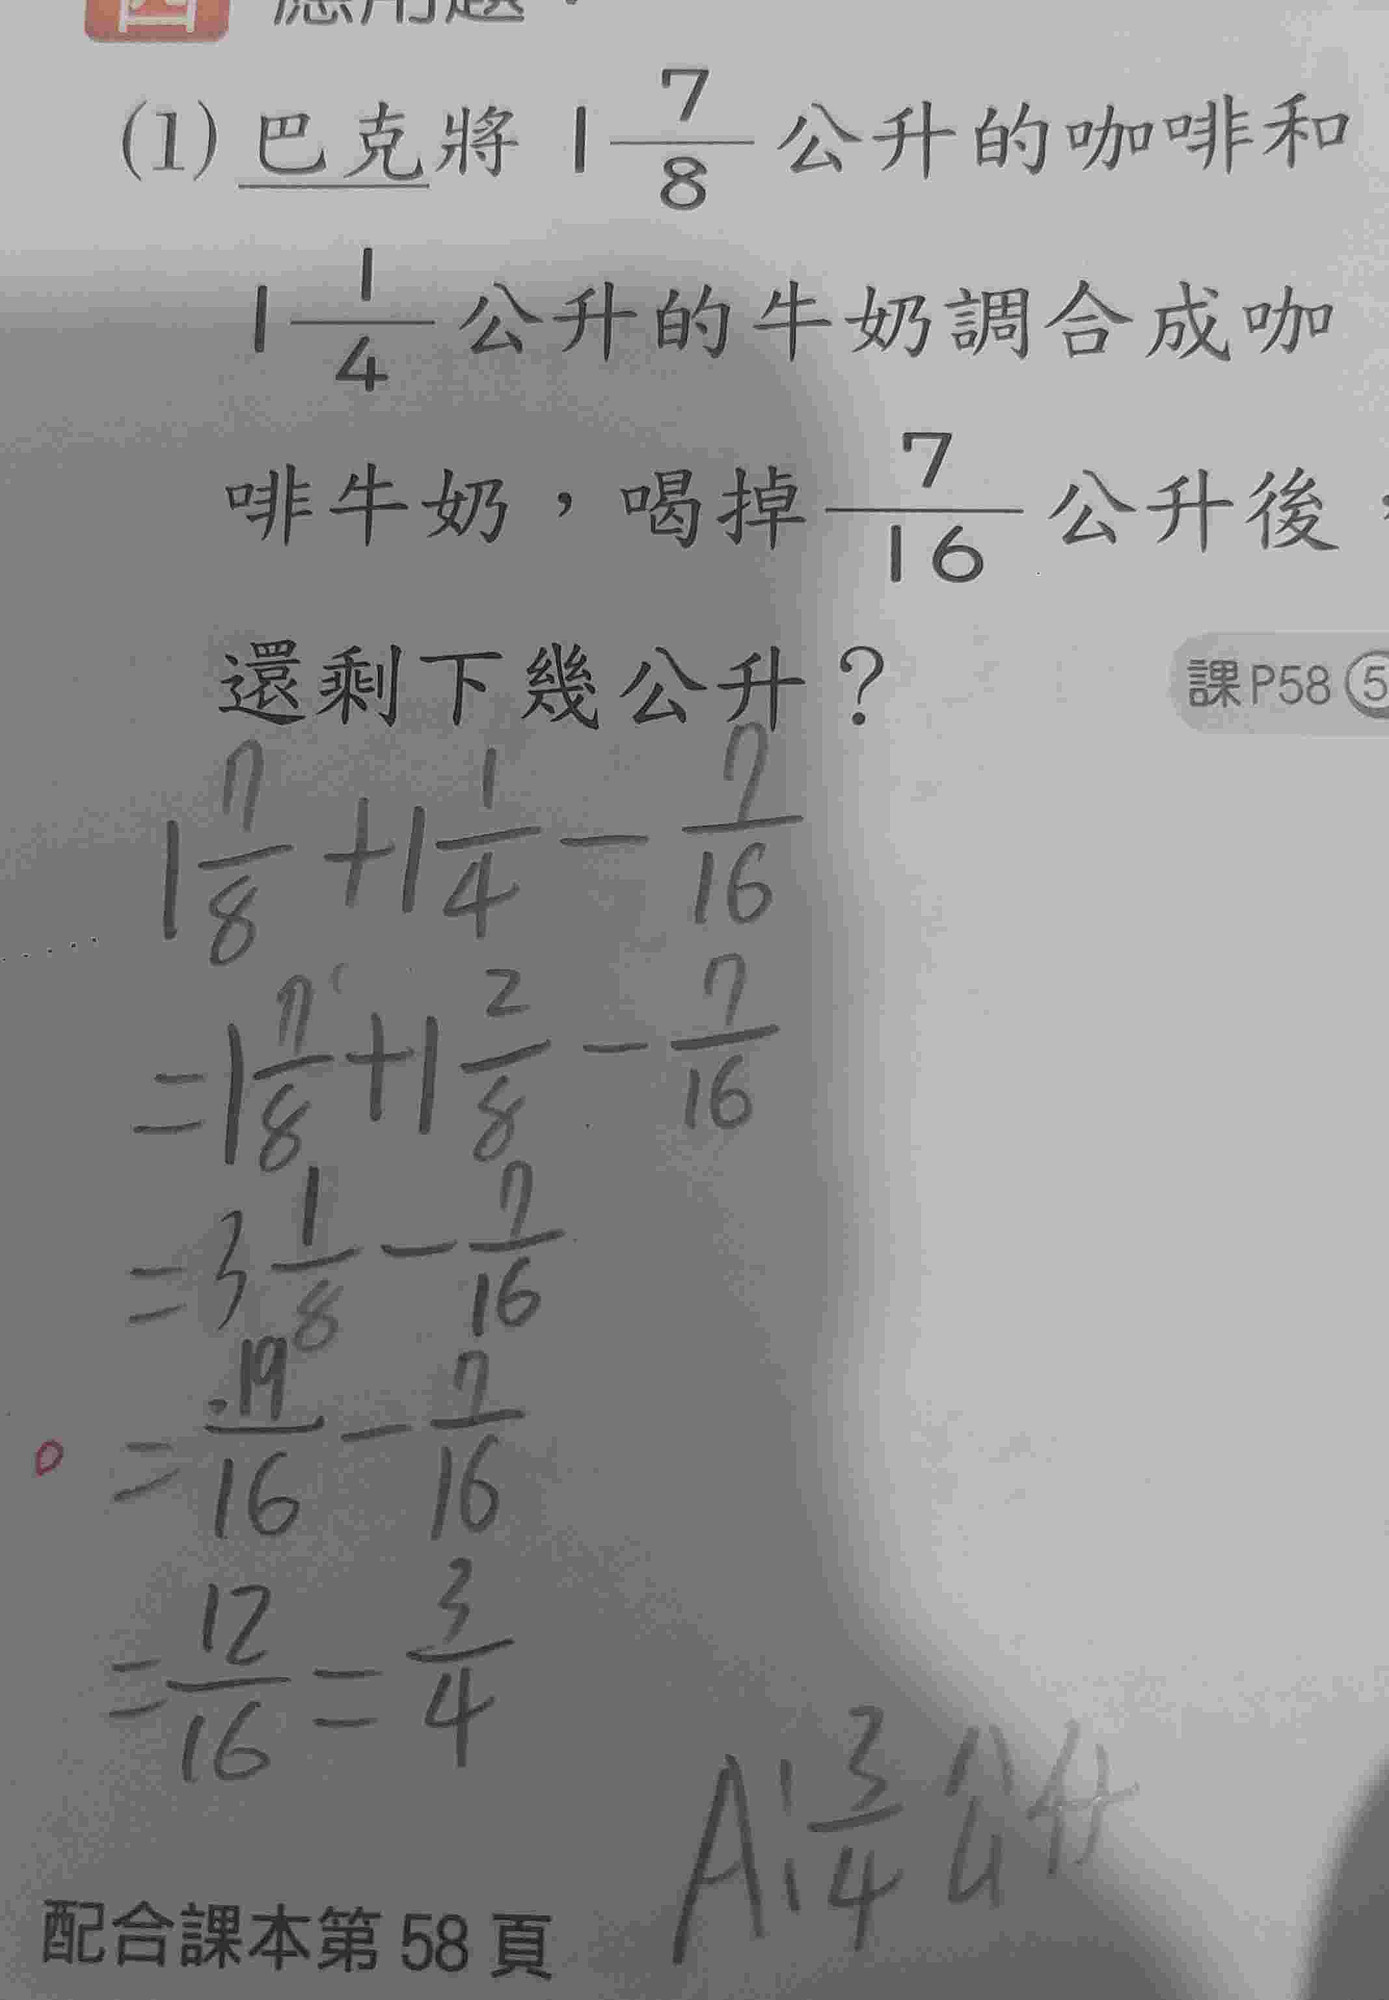 四 應用題：
(1) 巴克將 1 7/8 公升的咖啡和
1 1/4 公升的牛奶調合成咖
啡牛奶，喝掉 7/16 公升後，
還剩下幾公升？
課P58 ⑤
1 7/8 + 1 1/4 − 7/16
= 1 7/8 + 1 2/8 − 7/16
= 3 1/8 − 7/16
= 19/16 − 7/16
= 12/16 = 3/4
A: 3/4 公升
配合課本第 58 頁